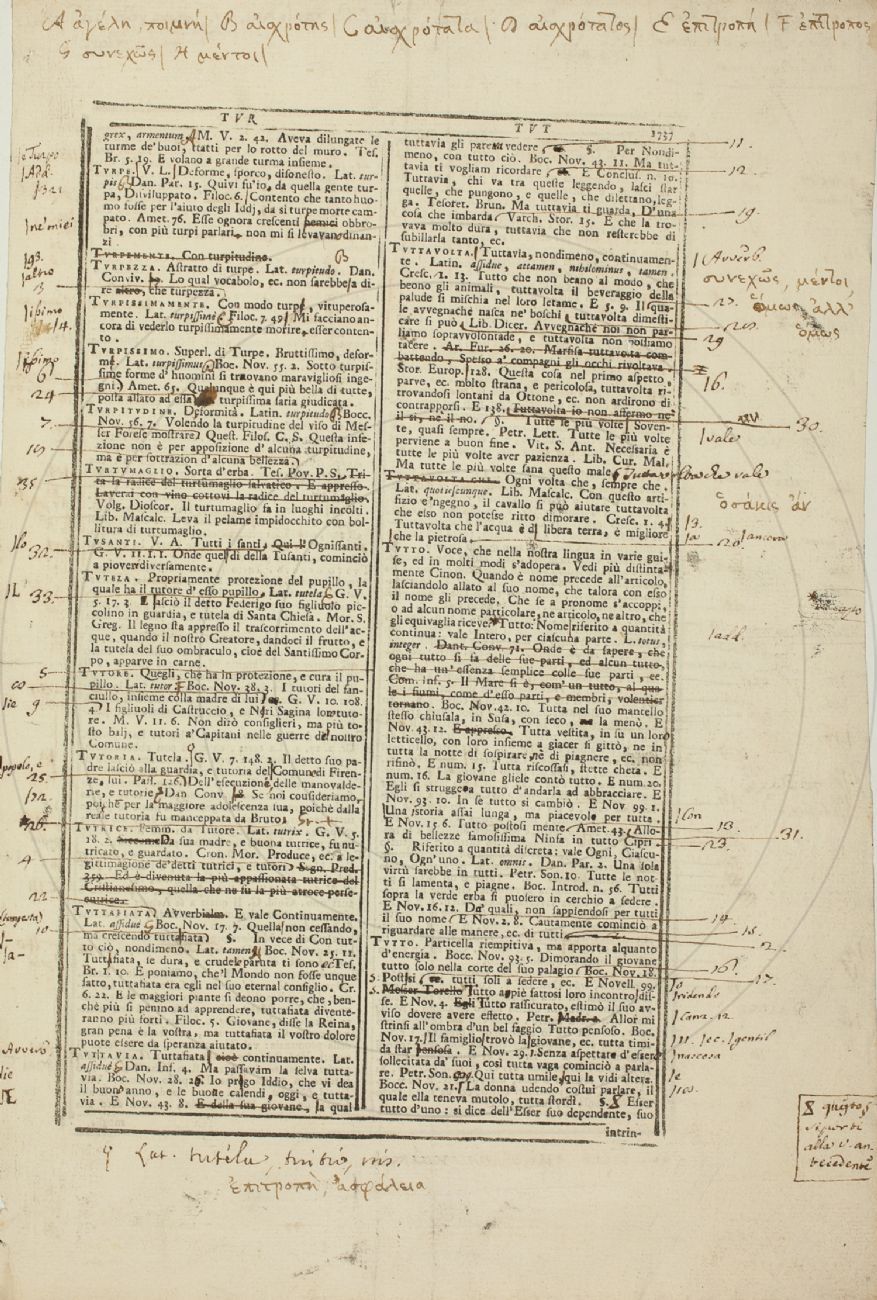 A ἀγέλη, ποιμνή| B αἰσχρότης| C αἰσχρότατα| D αἰσχρότατος| E ἐπιτροπή| F ἐπίτροπος
G συνεχῶς| H μέντοι|
TVR
TVT 1737
grex, armentum. M. V. 2. 42. Aveva dilungate le
turme de' buoi, tratti per lo rotto del muro. Tes.
Br. 5. 19. E volano a grande turma insieme.
TURPE. V. L. Deforme, sporco, disonesto. Lat. tur-
pis. Dan. Par. 15. Quivi fu' io, da quella gente tur-
pa, Disviluppato. Filoc. 6. Contento che tanto huo-
mo fosse per l'aiuto degl' Iddj, da sì turpe morte cam-
pato. Amet. 76. Esse ognora crescenti obbro-
brj, con più turpi parlari, non mi si levavano dinan-
zi
TURPEMENTE. Con turpitudine.
TURPEZZA. Astratto di turpe. Lat. turpitudo. Dan.
Conviv. Lo qual vocabolo, ec. non sarebbe sa di-
re altro, che turpezza.
TURPISSIMAMENTE. Con modo turpe, vituperosa-
mente. Lat. turpissime. Filoc. 7. 49. Mi facciano an-
cora di vederlo turpissimamente morire, esser conten-
to.
TURPISSIMO. Superl. di Turpe. Bruttissimo, defor-
me. Lat. turpissimus. Boc. Nov. 55. 2. Sotto turpis-
sime forme d'huomini si truovano maravigliosi inge-
gni. Amet. 65. Qualunque è qui più bella di tutte,
posta allato ad essa turpissima saria giudicata.
TURPITUDINE. Deformità. Latin. turpitudo. Bocc.
Nov. 56. 7. Volendo la turpitudine del viso di Mes-
ser Forese mostrare. Quest. Filos. C. S. Questa infe-
zione non è per apposizione d'alcuna turpitudine,
ma è per sottrazion d'alcuna bellezza.
TURTUMAGLIO. Sorta d'erba. Tes. Pov. P. S. Tri-
ta la radice del turtumaglio salvatico. E appresso.
Laverai con vino cottovi la radice del turtumaglio.
Volg. Dioscor. Il turtumaglio fa in luoghi incolti.
Lib. Mascalc. Leva il pelame impidocchito con bol-
litura di turtumaglio.
TUSANTI. V. A. Tutti i santi, Qui l'Ognissanti.
G. V. 11. 1. 1. Onde quel dì della Tusanti, cominciò
a piover diversamente.
TUTELA. Propriamente protezion del pupillo, la
quale ha il tutore d'esso pupillo. Lat. tutela. G. V.
5. 17. 3. lasciò il detto Federigo suo figliuolo pic-
colino in guardia, e tutela di Santa Chiesa. Mor. S.
Greg. Il legno sta appresso il trascorrimento dell'ac-
que, quando il nostro Creatore, dandoci il frutto, e
la tutela del suo ombraculo, cioè del Santissimo Cor-
po, apparve in carne.
TUTORE. Quegli, che ha in protezione, e cura il pu-
pillo. Lat. tutor. Boc. Nov. 38. 3. I tutori del fan-
ciullo, insieme colla madre di lui, G. V. 10. 108.
4. I figliuoli di Castruccio, e Neri Sagina lor tuto-
re. M. V. 11. 6. Non dirò consiglieri, ma più to-
sto balj, e tutori a' Capitani nelle guerre del nostro
Comune.
TUTORIA. Tutela. G. V. 7. 148. 2. Il detto suo pa-
dre lasciò alla guardia, e tutoria del Comune di Firen-
ze, lui. Past. 126. Dell'esecuzione delle manovalde-
rie, e tutorie. Dan Conv. Se noi consideriamo,
poichè per la maggiore adolescenza sua, poichè dalla
reale tutoria fu manceppata da Bruto.
TUTRICE. Femm. da Tutore. Lat. tutrix. G. V. 5.
18. 2. Da sua madre, e buona tutrice, fu nu-
tricato, e guardato. Cron. Mor. Produce, ec. a le-
gittimagione de' detti tutrici, e tutori. Segn. Pred.
359. Ed è divenuta la più appassionata tutrice del
Cristianesimo, quella che ne fu la più atroce perse-
cutrice.
TUTTAFIATA. Avverbialm. E vale Continuamente.
Lat. assidue. Boc. Nov. 17. 7. Quella non cessando,
ma crescendo tuttafiata. §. In vece di Con tut-
to ciò, nondimeno. Lat. tamen. Boc. Nov. 25. 11.
Tuttafiata, se dura, e crudele paruta ti sono ec. Tes.
Br. 1. 10. E poniamo, che 'l Mondo non fosse unque
fatto, tuttafiata era egli nel suo eternal consiglio. Cr.
6. 22. E le maggiori piante si deono porre, che, ben-
chè più si penino ad apprendere, tuttafiata divente-
ranno più forti. Filoc. 5. Giovane, disse la Reina,
gran pena è la vostra, ma tuttafiata il vostro dolore
puote essere da speranza aiutato.
TUTTAVIA. Tuttafiata, cioè continuamente. Lat.
assidue. Dan. Inf. 4. Ma passavám la selva tutta-
via. Boc. Nov. 28. 26. Io prego Iddio, che vi dea
il buon anno, e le buone calendi, oggi, e tutta-
via. E Nov. 43. 8. E della sua giovane, la qual
tuttavia gli pareva vedere. §. Per Nondi-
meno, con tutto ciò. Boc. Nov. 43. 11. Ma tut-
tavia ti vogliam ricordare. E Conclus. n. 10.
Tuttavia, chi va tra queste leggendo, lasci star
quelle, che pungono, e quelle, che dilettano, leg-
ga. Tesoret. Brun. Ma tuttavia ti guarda, D'una
cosa che imbarda. Varch. Stor. 15. E che la tro-
vava molto dura, tuttavia che non resterebbe di
subillarla tanto, ec.
TUTTAVOLTA. Tuttavia, nondimeno, continuamen-
te. Latin. assidue, attamen, nihilominus, tamen.
Cresc. 2. 13. Tutto che non beano al modo, che
beono gli animali, tuttavolta il beveraggio della
palude si mischia nel loro letame. E 5. 9. Il qua-
le avvegnachè nasca ne' boschi, tuttavolta dimesti-
care si può. Lib. Dicer. Avvegnachè noi non par-
liamo sopravvolontade, e tuttavolta non possiamo
tacere. Ar. Fur. 26. 20. Marfisa tuttavolta com-
battendo, Spesso a' compagni gli occhi rivoltava.
Stor. Europ. 128. Questa cosa nel primo aspetto,
parve, ec. molto strana, e pericolosa, tuttavolta ri-
trovandosi lontani da Ottone, ec. non ardirono di
contrapporsi. E 138. Tuttavolta io non affermo ne'
il sì, ne il no. §. Tutte le più volte. Soven-
te, quasi sempre. Petr. Lett. Tutte le più volte
perviene a buon fine. Vit. S. Ant. Necessaria è
tutte le più volte aver pazienza. Lib. Cur. Mal.
Ma tutte le più volte sana questo male.
TUTTAVOLTA CHE. Ogni volta che, sempre che.
Lat. quotiescunque. Lib. Mascalc. Con questo arti-
fizio e 'ngegno, il cavallo si può aiutare tuttavolta
che esso non potesse ritto dimorare. Cresc. 1. 4.
Tuttavolta che l'acqua è di libera terra, è migliore
che la pietrosa.
TUTTO. Voce, che nella nostra lingua in varie gui-
se, ed in molti modi s'adopera. Vedi più distinta-
mente Cinon. Quando è nome precede all'articolo,
lasciandolo allato al suo nome, che talora con esso
il nome gli precede. Che se a pronome s'accoppi,
o ad alcun nome particolare, ne articolo, ne altro, che
gli equivaglia riceve. Tutto: Nome riferito a quantità
continua: vale Intero, per ciascuna parte. L. totus,
integer. Dant. Conv. 71. Onde è da sapere, che
ogni tutto si fa delle sue parti, ed alcun tutto,
che ha un' essenza semplice colle sue parti, ec.
Com. Inf. 5. Il Mare si è, com' un tutto, al qua-
le i fiumi, come d'esso parti, e membri, volentier
tornano. Boc. Nov. 42. 10. Tutta nel suo mantello
stesso chiusala, in Susa, con seco, la menò. E
Nov. 43. 12. E appresso. Tutta vestita, in su un loro
letticello, con loro insieme a giacer si gittò, ne in
tutta la notte di sospirare, nè di piagnere, ec. non
rifinò. E num. 15. Tutta riscossasi, stette cheta. E
num. 16. La giovane gliele contò tutto. E num. 20.
Egli si struggeva tutto d'andarla ad abbracciare. E
Nov. 93. 10. In se tutto si cambiò. E Nov. 99. 1.
Una istoria assai lunga, ma piacevole per tutta.
E Nov. 15. 6. Tutto postosi mente. Amet. 43. Allo-
ra di bellezze famosissima Ninfa in tutto Cipri.
§. Riferito a quantità discreta: vale Ogni, Ciascu-
no, Ogn'uno. Lat. omnis. Dan. Par. 2. Una sola
virtù sarebbe in tutti. Petr. Son. 10. Tutte le not-
ti si lamenta, e piagne. Boc. Introd. n. 56. Tutti
sopra la verde erba si puosero in cerchio a sedere.
E Nov. 16. 12. Da' quali, non sappiendosi per tutti
il suo nome. E Nov. 2. 8. Cautamente cominciò a
riguardare alle maniere, ec. di tutti
TUTTO. Particella riempitiva, ma apporta alquanto
d'energia. Bocc. Nov. 93. 5. Dimorando il giovane
tutto solo nella corte del suo palagio. Boc. Nov. 18.
5. Postisi tutti soli a sedere, ec. E Novell. 99.
5. Messer Torello Tutto appiè fattosi loro incontro, dis-
se. E Nov. 4. Egli Tutto rassicurato, estimò il suo av-
viso dovere avere effetto. Petr. Madr. 2. Allor mi
strinsi all'ombra d'un bel faggio Tutto pensoso. Boc.
Nov. 17. Il famiglio trovò la giovane, ec. tutta timi-
da star pensosa. E Nov. 29. 1. Senza aspettare d'esser
sollecitata da' suoi, così tutta vaga cominciò a parla-
re. Petr. Son. Qui tutta umile, qui la vidi altera.
Bocc. Nov. 21. La donna udendo costui parlare, il
quale ella teneva mutolo, tutta stordì. §. Esser
tutto d'uno: si dice dell'Esser suo dependente, suo
intrin-
11.
12.
19.
| Avverb.
συνεχῶς, μέντοι
ὅμως ἀλλ'
ὅμως
29
16.
30.
| vale
ὁσάκις ἂν
20.
13.
31.
23.
14.
15.
2.
16.
17.
6
24
7.
19
35
32.
33.
5
9
25.
4
22
10
X questo §
si porti
alla v. an-
tecedente
§ Lat. tutela,
ἐπιτροπή, ἀσφάλεια